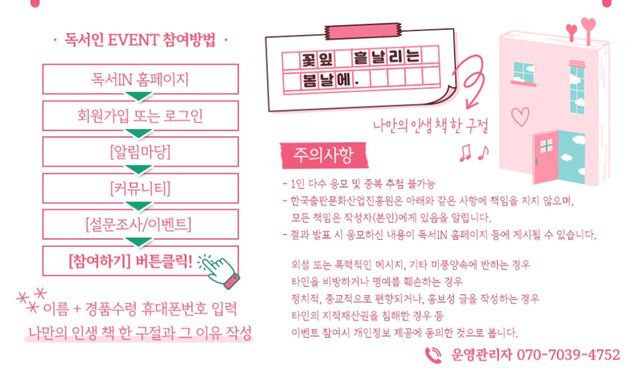 · 독서인 EVENT 참여방법 ·
독서IN 홈페이지
회원가입 또는 로그인
[알림마당]
[커뮤니티]
[설문조사/이벤트]
[참여하기] 버튼클릭!
이름 + 경품수령 휴대폰번호 입력
나만의 인생 책 한 구절과 그 이유 작성
꽃잎 흩날리는
봄날에.
나만의 인생 책 한 구절
주의사항
- 1인 다수 응모 및 중복 추첨 불가능
- 한국출판문화산업진흥원은 아래와 같은 사항에 책임을 지지 않으며,
모든 책임은 작성자(본인)에게 있음을 알립니다.
- 결과 발표 시 응모하신 내용이 독서IN 홈페이지 등에 게시될 수 있습니다.
외설 또는 폭력적인 메시지, 기타 미풍양속에 반하는 경우
타인을 비방하거나 명예를 훼손하는 경우
정치적, 종교적으로 편향되거나, 홍보성 글을 작성하는 경우
타인의 지적재산권을 침해한 경우 등
이벤트 참여시 개인정보 제공에 동의한 것으로 봅니다.
운영관리자 070-7039-4752